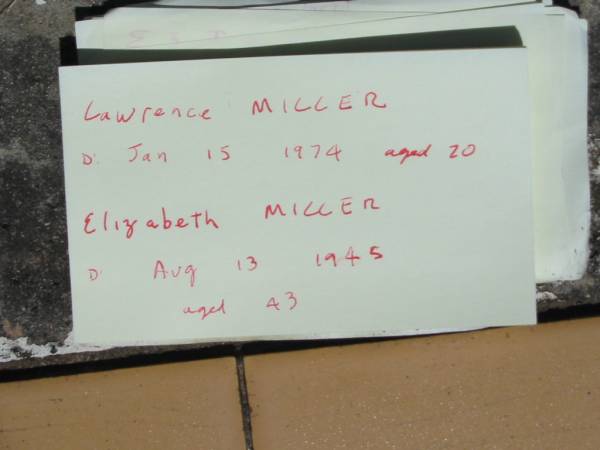 Lawrence MILLER
D. Jan 15 1974 aged 20
Elizabeth MILLER
D. Aug 13 1945
aged 43